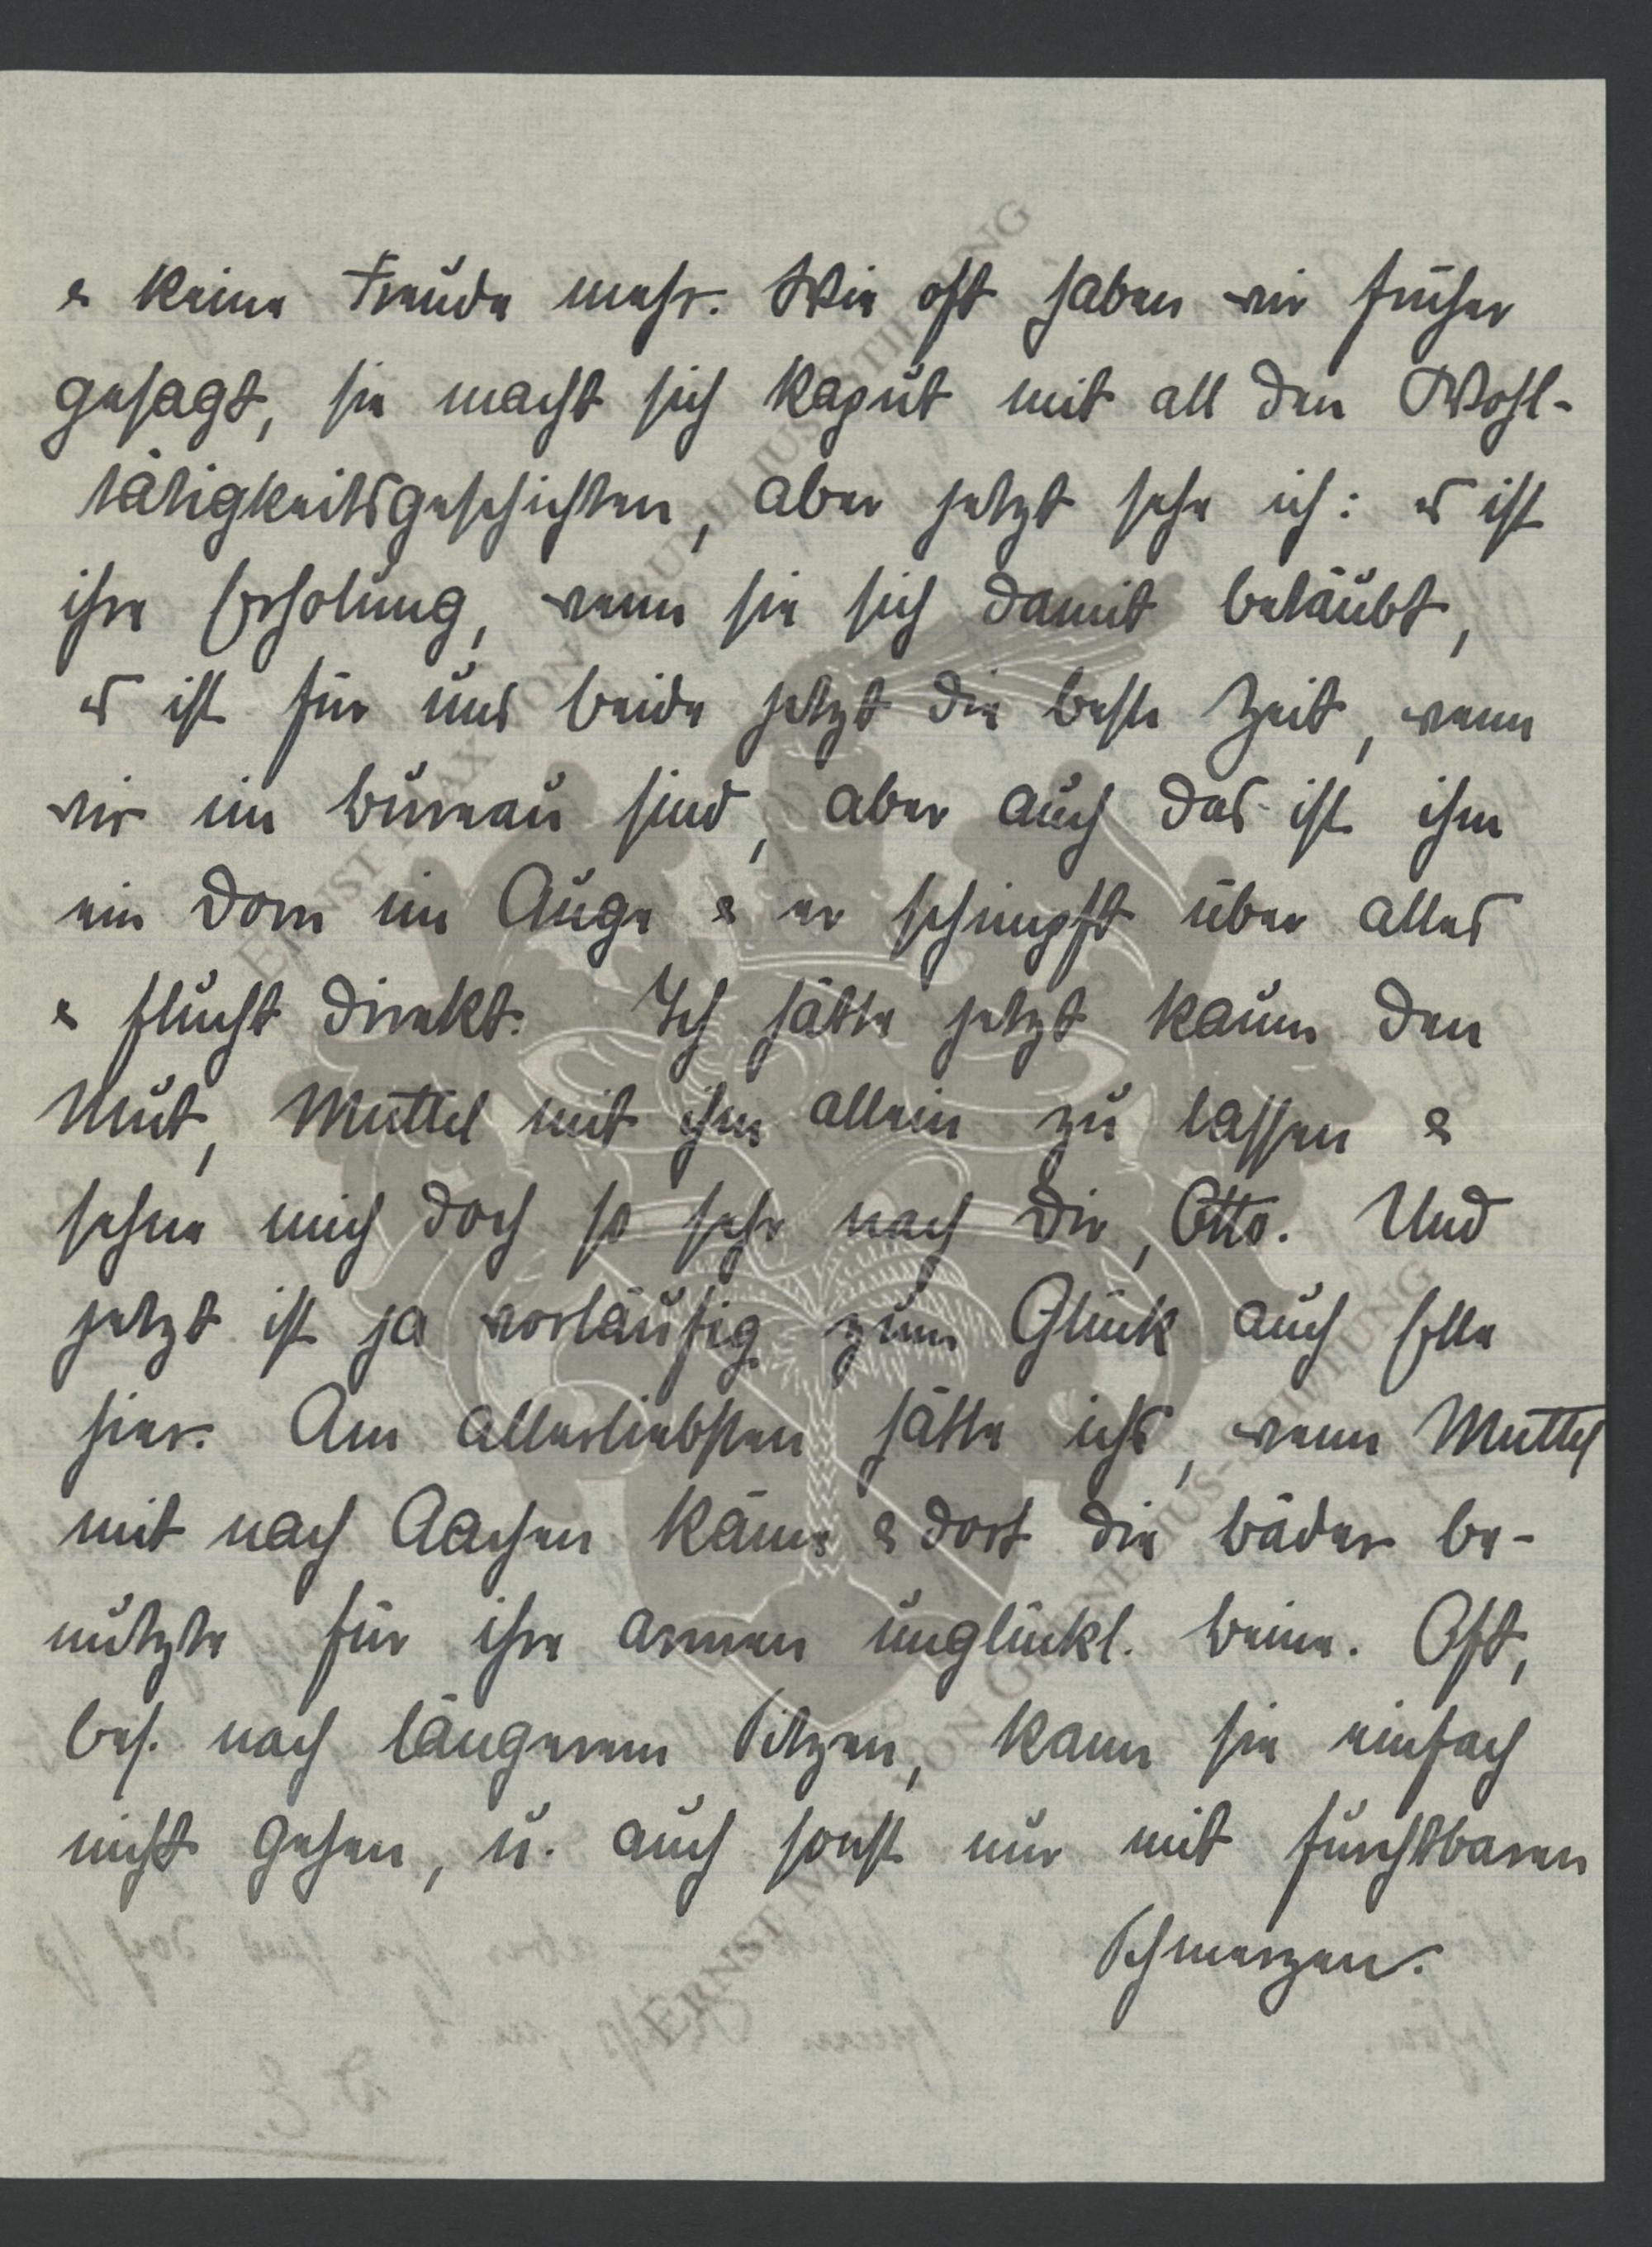 & keine Freude mehr. Wie oft haben wir früher
gesagt, sie macht sich kaput mit all den Wohl-
tätigkeitsgeschichten, aber jetzt sehe ich: es ist
ihre Erholung, wenn sie sich damit betäubt,
es ist für uns beide jetzt die beste Zeit, wenn
wir im Bureau sind, aber auch das ist ihm
ein Dorn im Auge & er schimpft über alles
& flucht direkt. Ich hätte jetzt kaum den
Mut, Muttel mit ihm allein zu lassen &
sehne mich doch so sehr nach Dir, Otto. Und
jetzt ist ja vorläufig zum Glück auch Elle
hier. Am allerliebsten hätte ichs, wenn Muttel
mit nach Aachen käme & dort die Bäder be-
nützte für ihre armen unglückl. Beine. Oft,
bes. nach längerem Sitzen, kann sie einfach
nicht gehen, u. auch sonst nur mit furchtbaren
Schmerzen.
ERNST MAX VON GRUNELIUS-STIFTUNG
ERNST MAX VON GRUNELIUS-STIFTUNG